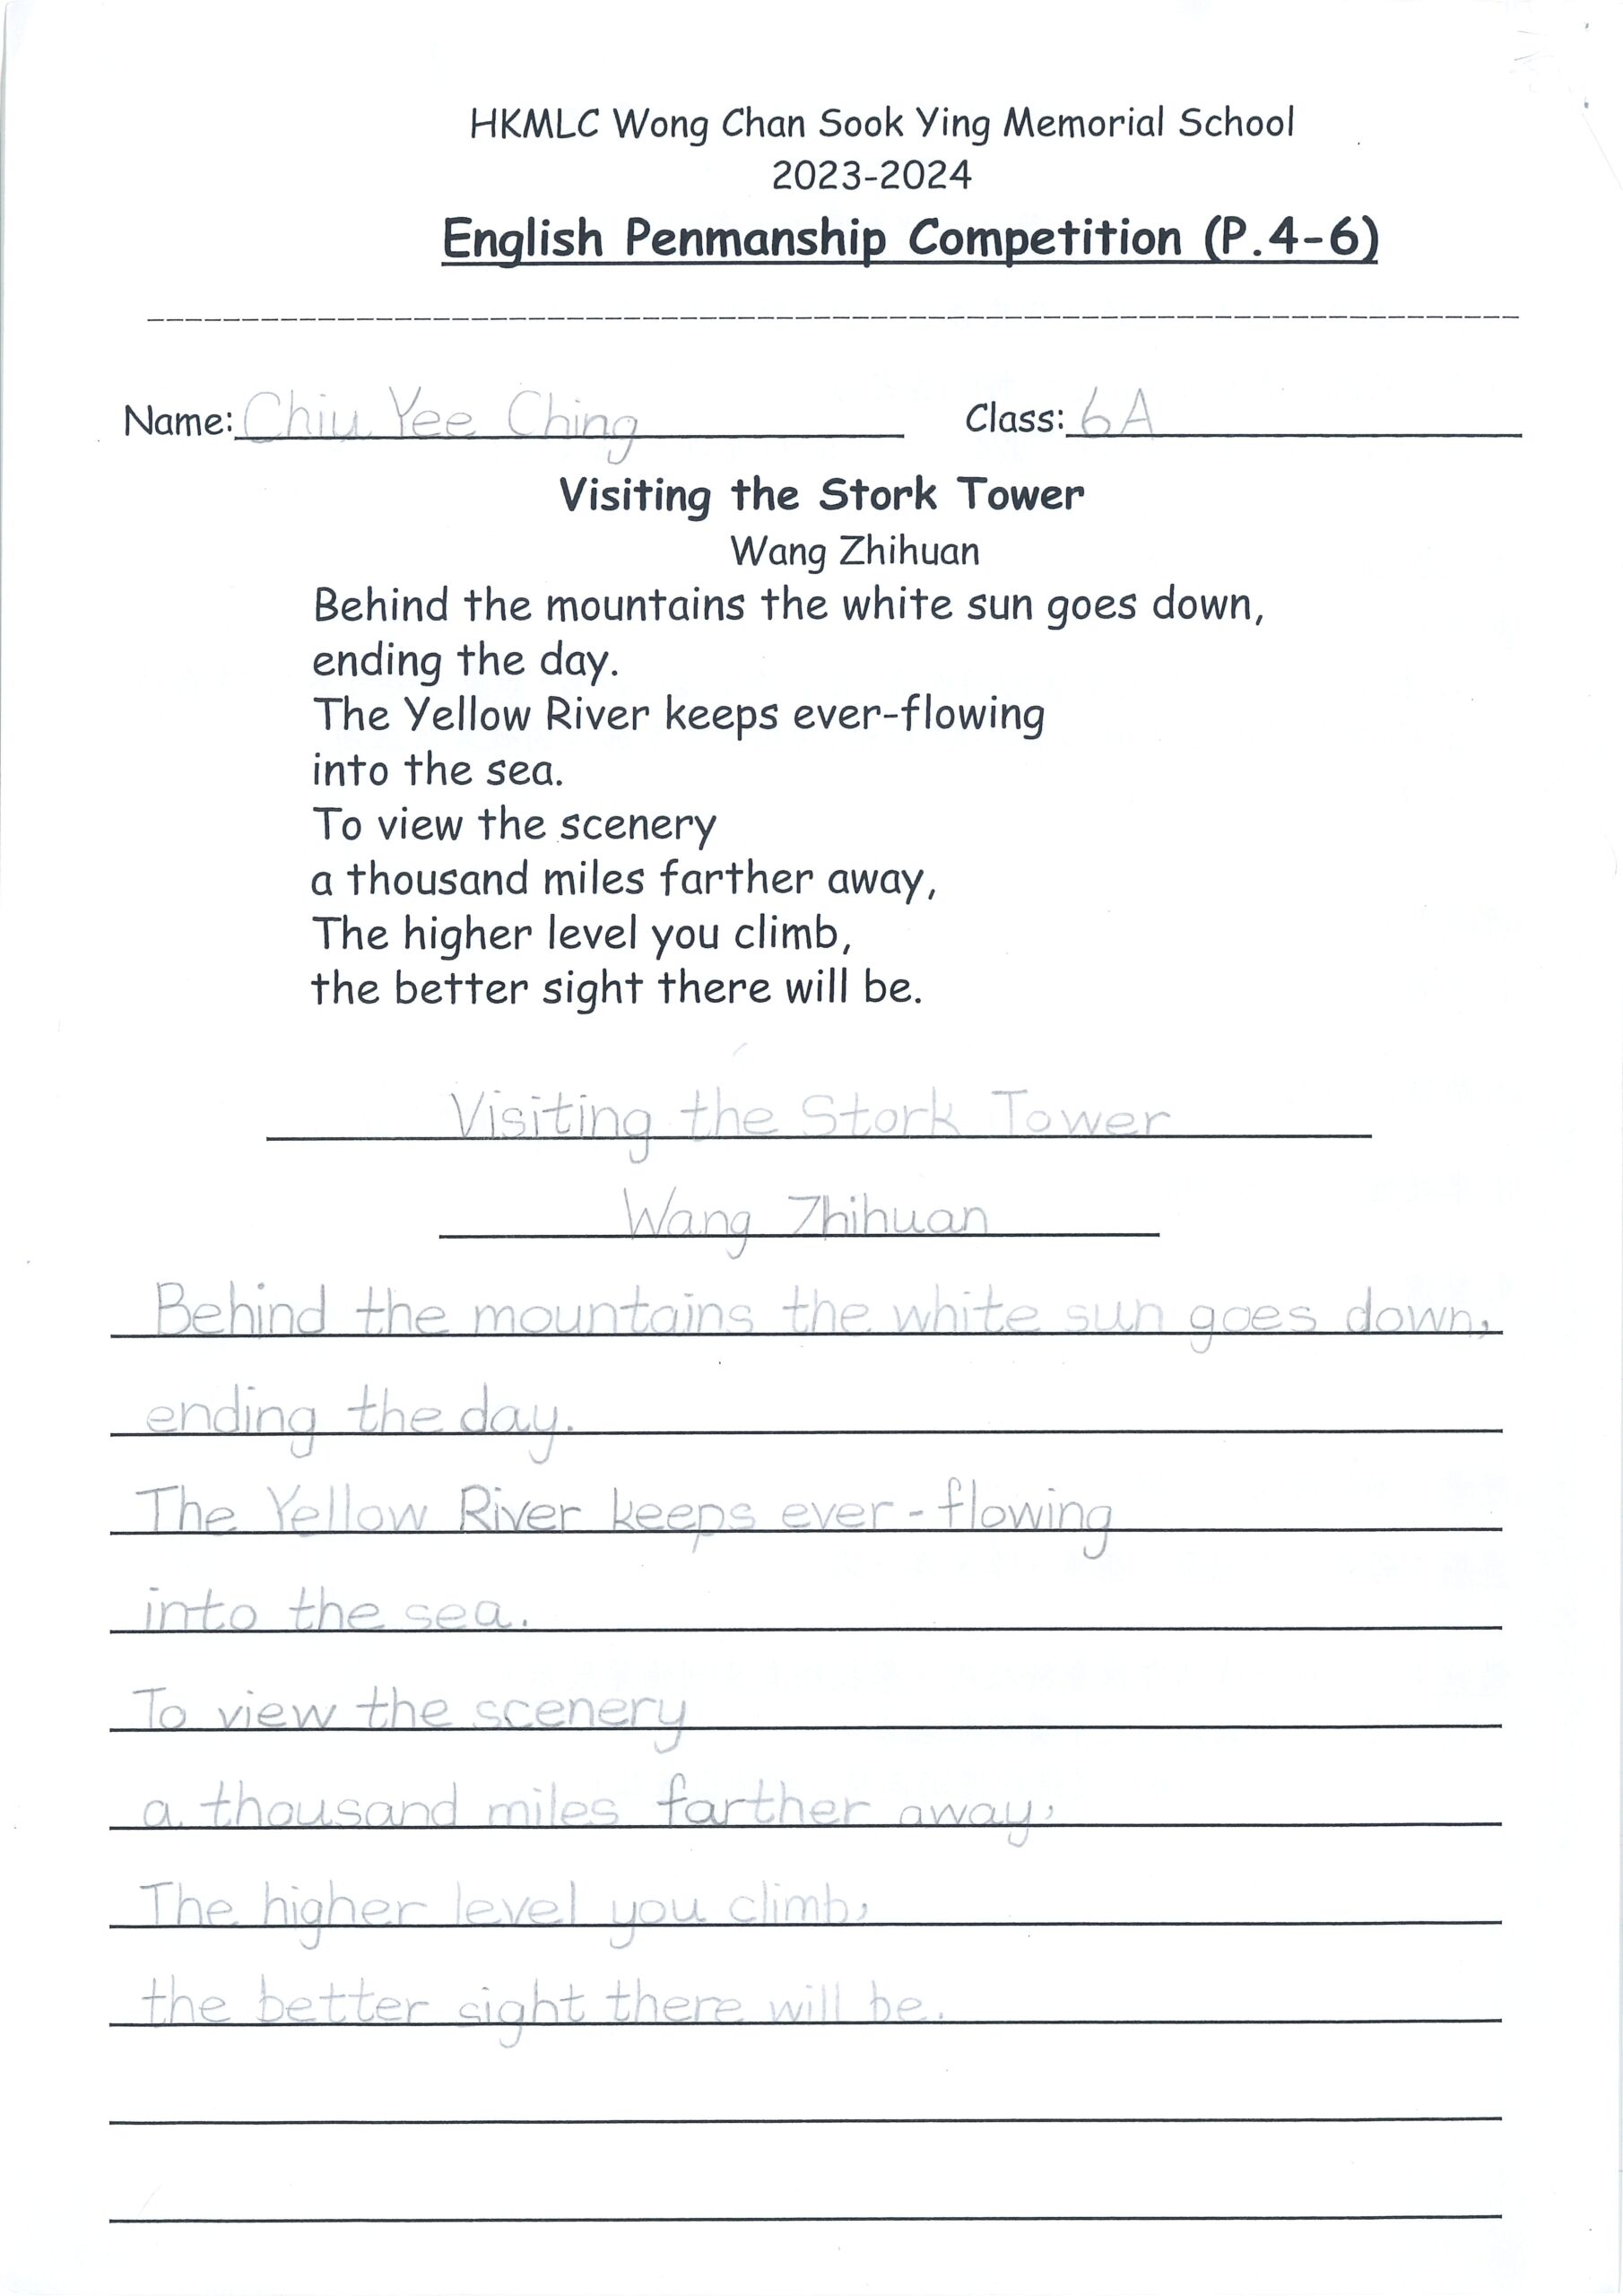 HKMLC Wong Chan Sook Ying Memorial School
2023-2024
English Penmanship Competition (P.4-6)
Name: Chiu Yee Ching Class: 6A
Visiting the Stork Tower
Wang Zhihuan
Behind the mountains the white sun goes down,
ending the day.
The Yellow River keeps ever-flowing
into the sea.
To view the scenery
a thousand miles farther away,
The higher level you climb,
the better sight there will be.
Visiting the Stork Tower
Wang Zhihuan
Behind the mountains the white sun goes down,
ending the day.
The Yellow River keeps ever-flowing
into the sea.
To view the scenery
a thousand miles farther away,
The higher level you climb,
the better sight there will be.